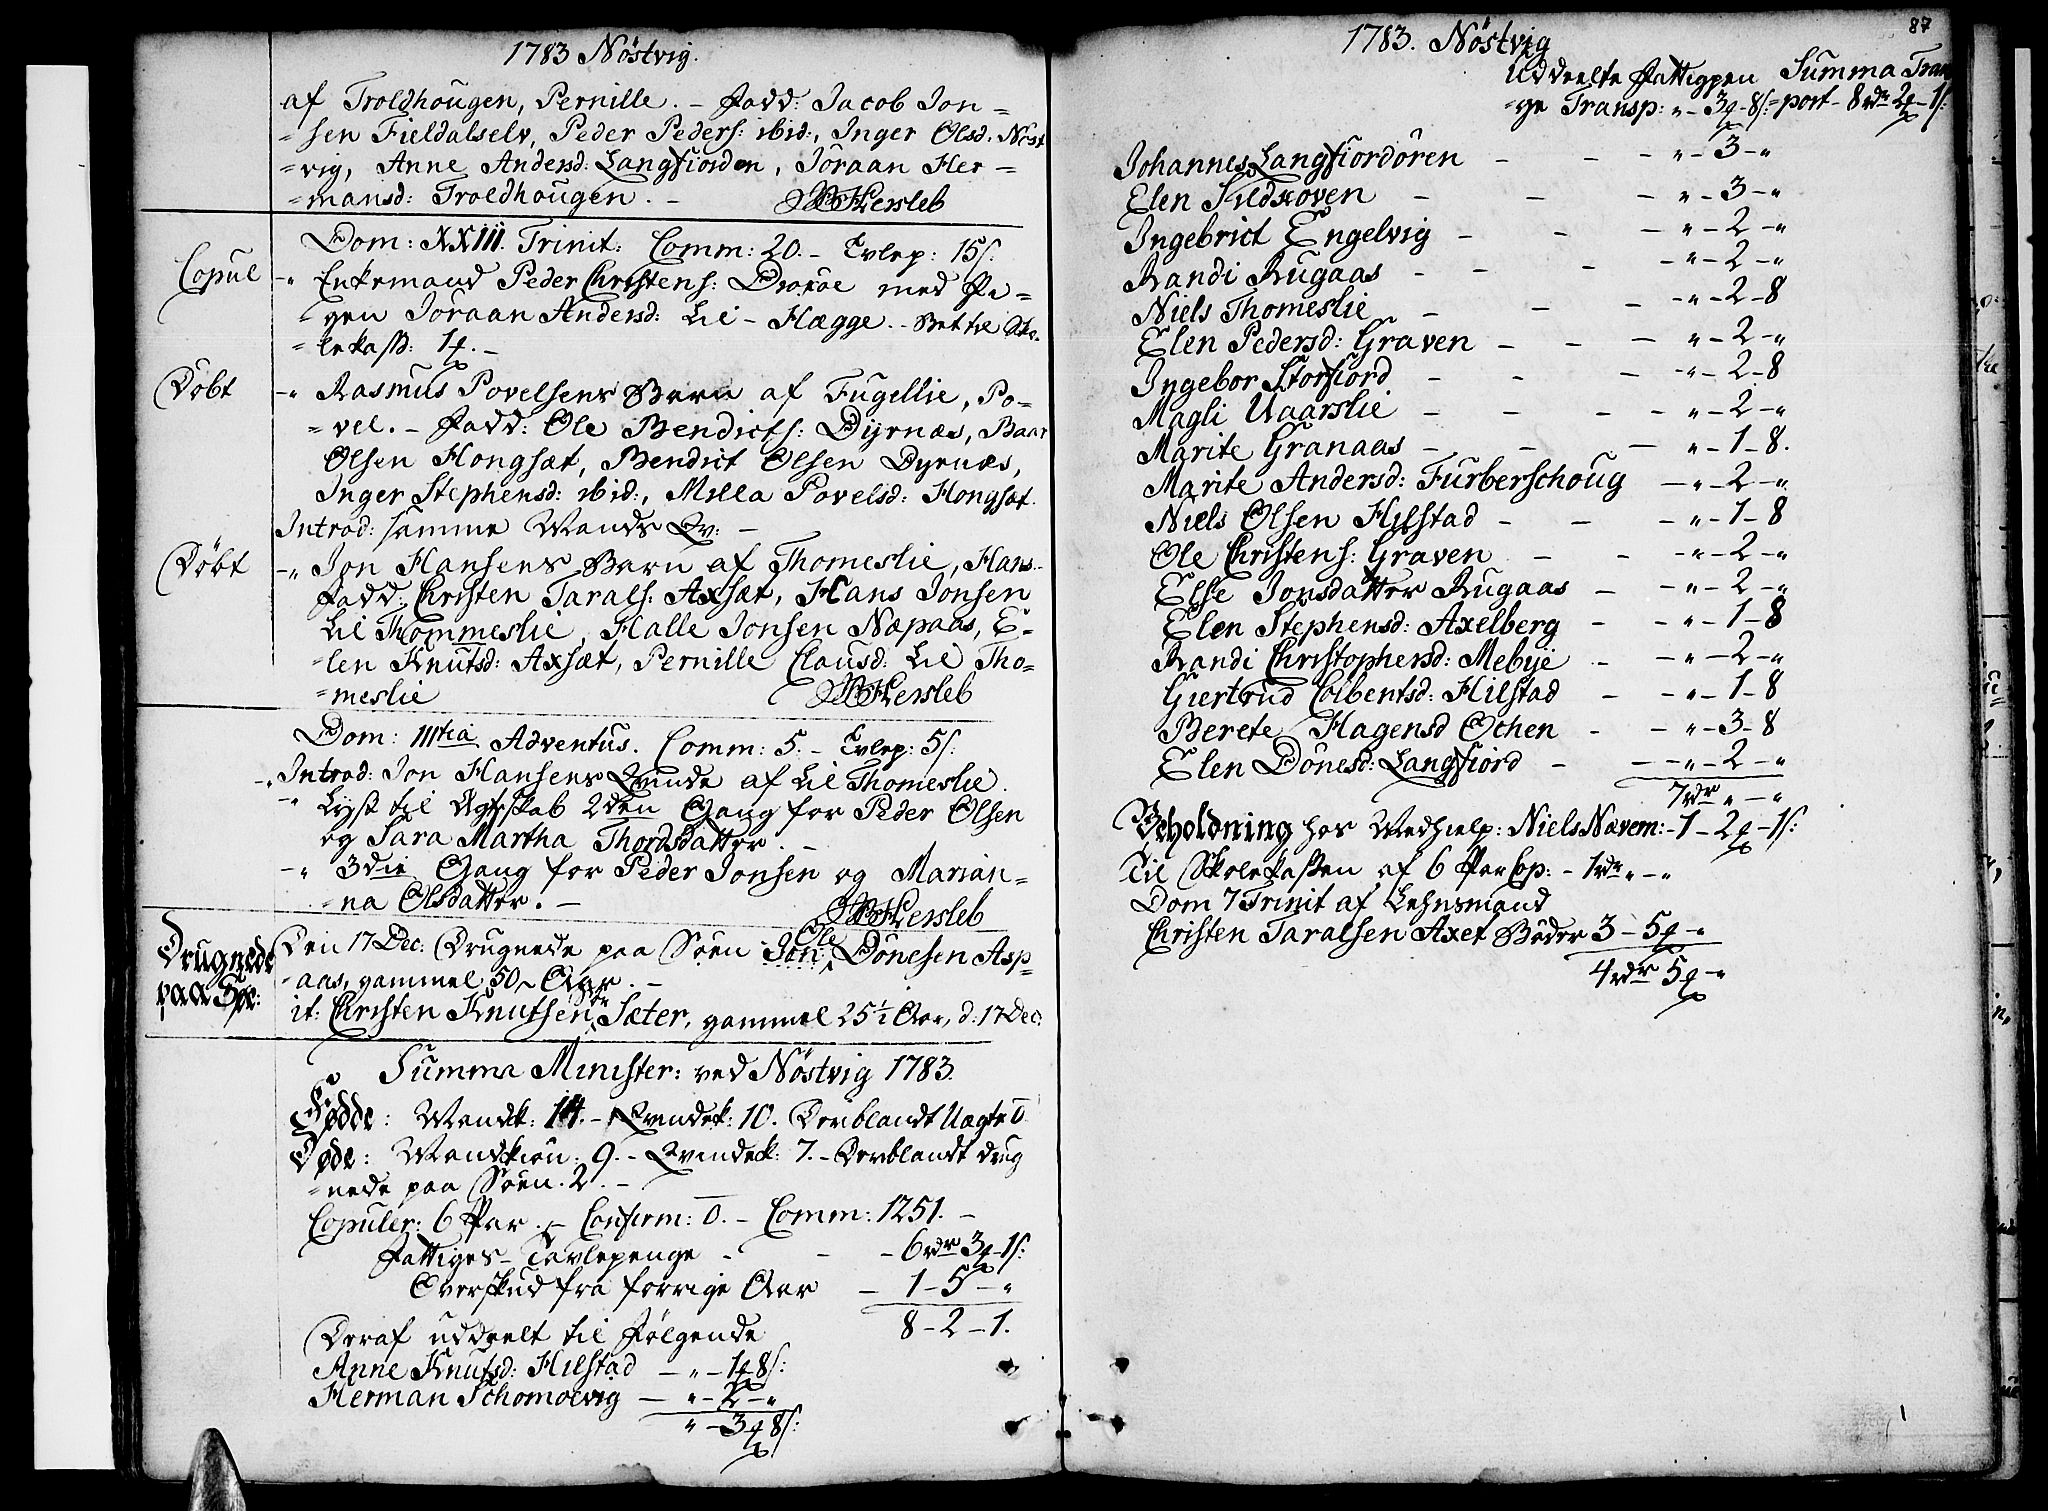 1783 Nöstvig.
af Troldhougen, Pernille. - Fadd: Jacob Jon=
=sen Fieldalselv, Peder Peders: ibid:, Inger Olsd: Nöst
=vig, Anne Andersd: Langfiorden, Joraan Her=
=mansd: Troldhougen. - Hersleb
Dom: XXIII. Trinit: Comm: 20. - Tvlep: 15/:
Copul -" Enkemand Peder Christens: med Pi=
=gen Joraan Andersd: Lil-Hægge. - Bet til Sko=
=lekass: 1
Döbt -" Rasmus Povelsens Barn af Fugellie, Po=
=vel. - Fadd: Ole Bendicts: Dyrnæs, Baar
Olsen Hongsæt, Bendict Olsen Dyrnæs,
Inger Stephensd: ibid:, Milla Povelsd: Hongsæt.
Introd: samme Mands Qv: -
Döbt -" Jon Hansens Barn af Thomeslie, Hans.-
Fadd: Christen Tarals: Axsæt, Hans Jonsen
Lil Thommeslie, Halle Jonsen Næpaas, E=
=len Knutsd: Axsæt, Pernille Clausd: Lil Tho=
=meslie Hersleb
Dom: IIItia Adventus. Comm: 5. - Tvlep: 5/:
-. Introd: Jon Hansens Qvinde af Lil Thomeslie.
-" Lyst til Ægteskab 2den Gang for Peder Olsen
og Sara Martha Thordsdatter. -
-" 3die Gang for Peder Jonsen og Marian=
=na Olsdatter. - Hersleb
Drugnede
paa Söe: Den 17 Dec: Drugnede paa Söen Jon Ole Dönesen Asp=
=aas, gammel 50 Aar. -
it: Christen Knutsen Sætter, gammel 25½ Aar, d: 17 Dec:
Summa Minister: ved Nöstvig 1783.
Födde: Mandk: 14. - Qvindek: 10. Deriblandt Uægte 0
Døde: Mandkiön: 9. - Qvindek: 7. - Deriblandt drug
=nede paa Söen. 2. -
Copuler: 6 Par. - Confirm: 0. - Comm: 1251. -
Fattiges Tavlepenge - - - 6 rdr 3-1/:
Overskud fra forrige Aar - 1-5-"
8-2-1.
Deraf uddeelt til Fölgende
Anne Knutsd: Hilstad - " - 1-8/:
Herman Schomoevig - " - 2 - "
" - 3-8/:
87
1783. Nöstvig
Uddeelte Fattigpen Summa Tran
=ge Transp: " - 3-8/: =port - 8 rdr 2-1/:
Johannes Langfiordören - - - " - 3 - "
Elen Sildhoven - - - " - 3 - "
Ingebrict Engelvig - - - " - 2 - "
Randi Rugaas - - - " - 2 - "
Niels Thomeslie - - - " - 2 - 8
Elen Pedersd: Graven - - - " - 2 - "
Ingebor Storfiord - - - " - 2 - 8
Magli Uaarslie - - - - " - 2 - "
Marite Granaas - - - " - 1 - 8.
Marite Andersd: Furberschoug - " - 2 - "
Niels Olsen Hilstad - - - " - 1 - 8
Ole Christens: Graven - - - " - 2 - "
Else Jonsdatter Rugaas - - " - 2 - "
Elen Stephensd: Axelberg - - " - 1 - 8
Randi Christophersd: Mebye - - " - 2 - "
Giertrud Colbentsd: Hilstad - - " - 1 - 8
Berete Hagensd Ochen - - " - 3 - 8
Elen Dönesd: Langfiord - - - " - 2 - "
7 rdr " - "
Beholdning hos Medhielp: Niels Nævem: - 1 - 2 - 1/:
Til Skolekassen af 6 Par Cop: - 1 rdr " - "
Dom 7 Trinit af Lehnsmand
Christen Taralsen Axet Böder 3 - 5 - "
4 rdr 5 - "